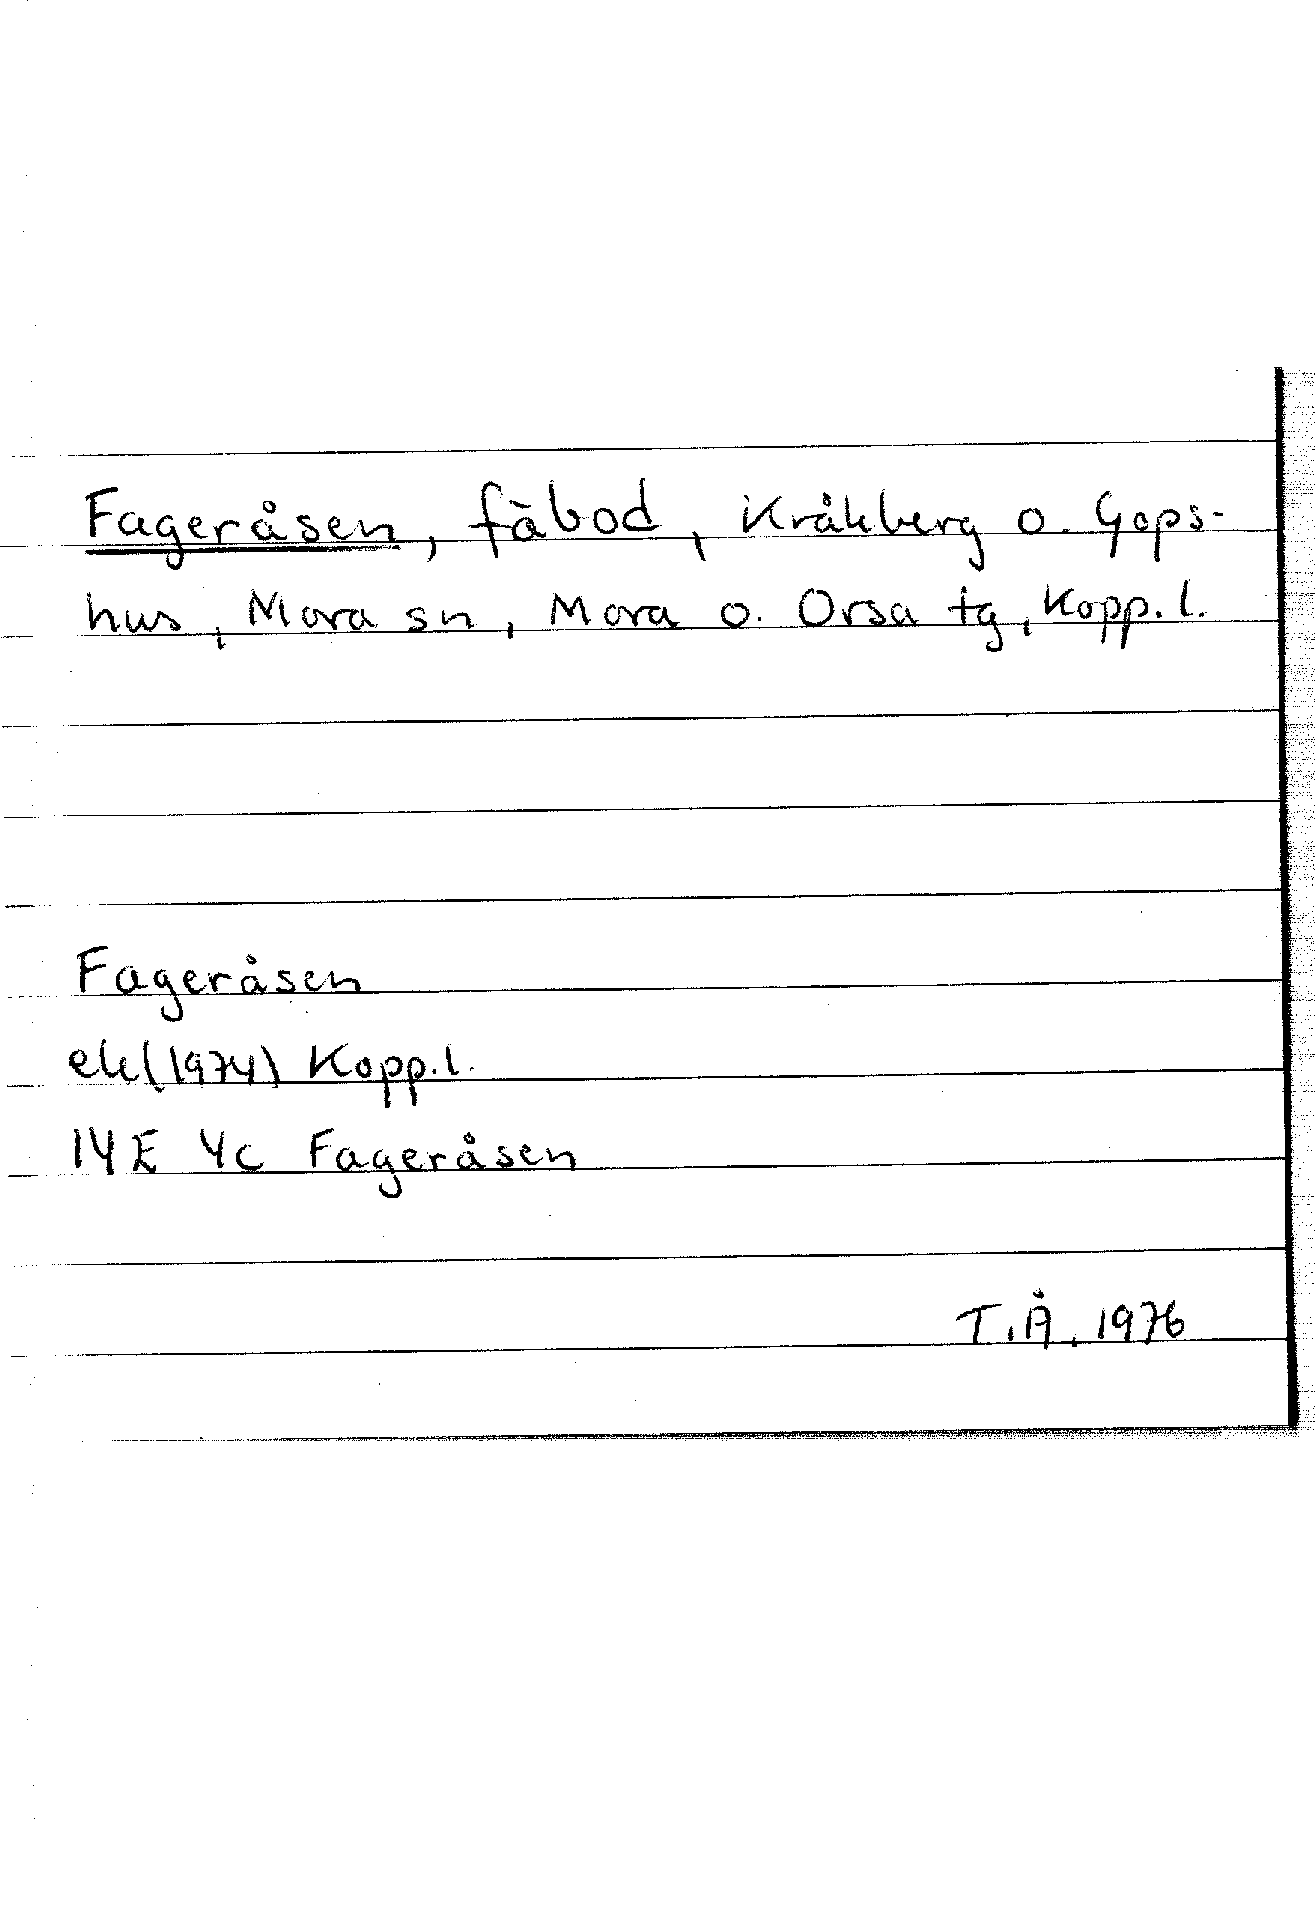 Fageråsen, fäbod, Kråkberg o. Gops-
hus, Mora sn, Mora o. Orsa tg, Kopp. l.
Fageråsen
ek(1974) Kopp.l.
14E 4c Fageråsen
T.Å. 1976